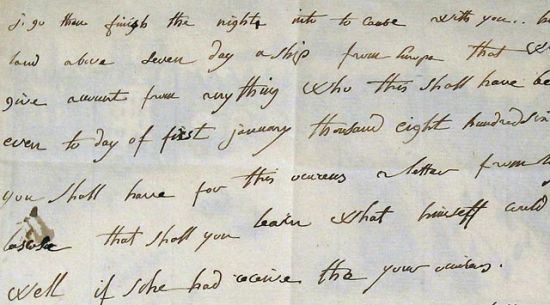 j. go then finish the night into to cause with you.. b
land above seven day a ship from Europa that W
give account from any thing who this shall have be
even to day of first january thousand eight hundred six
you shall have for this a letter from h
that shall you learn what himself could
Well if she had receive the your